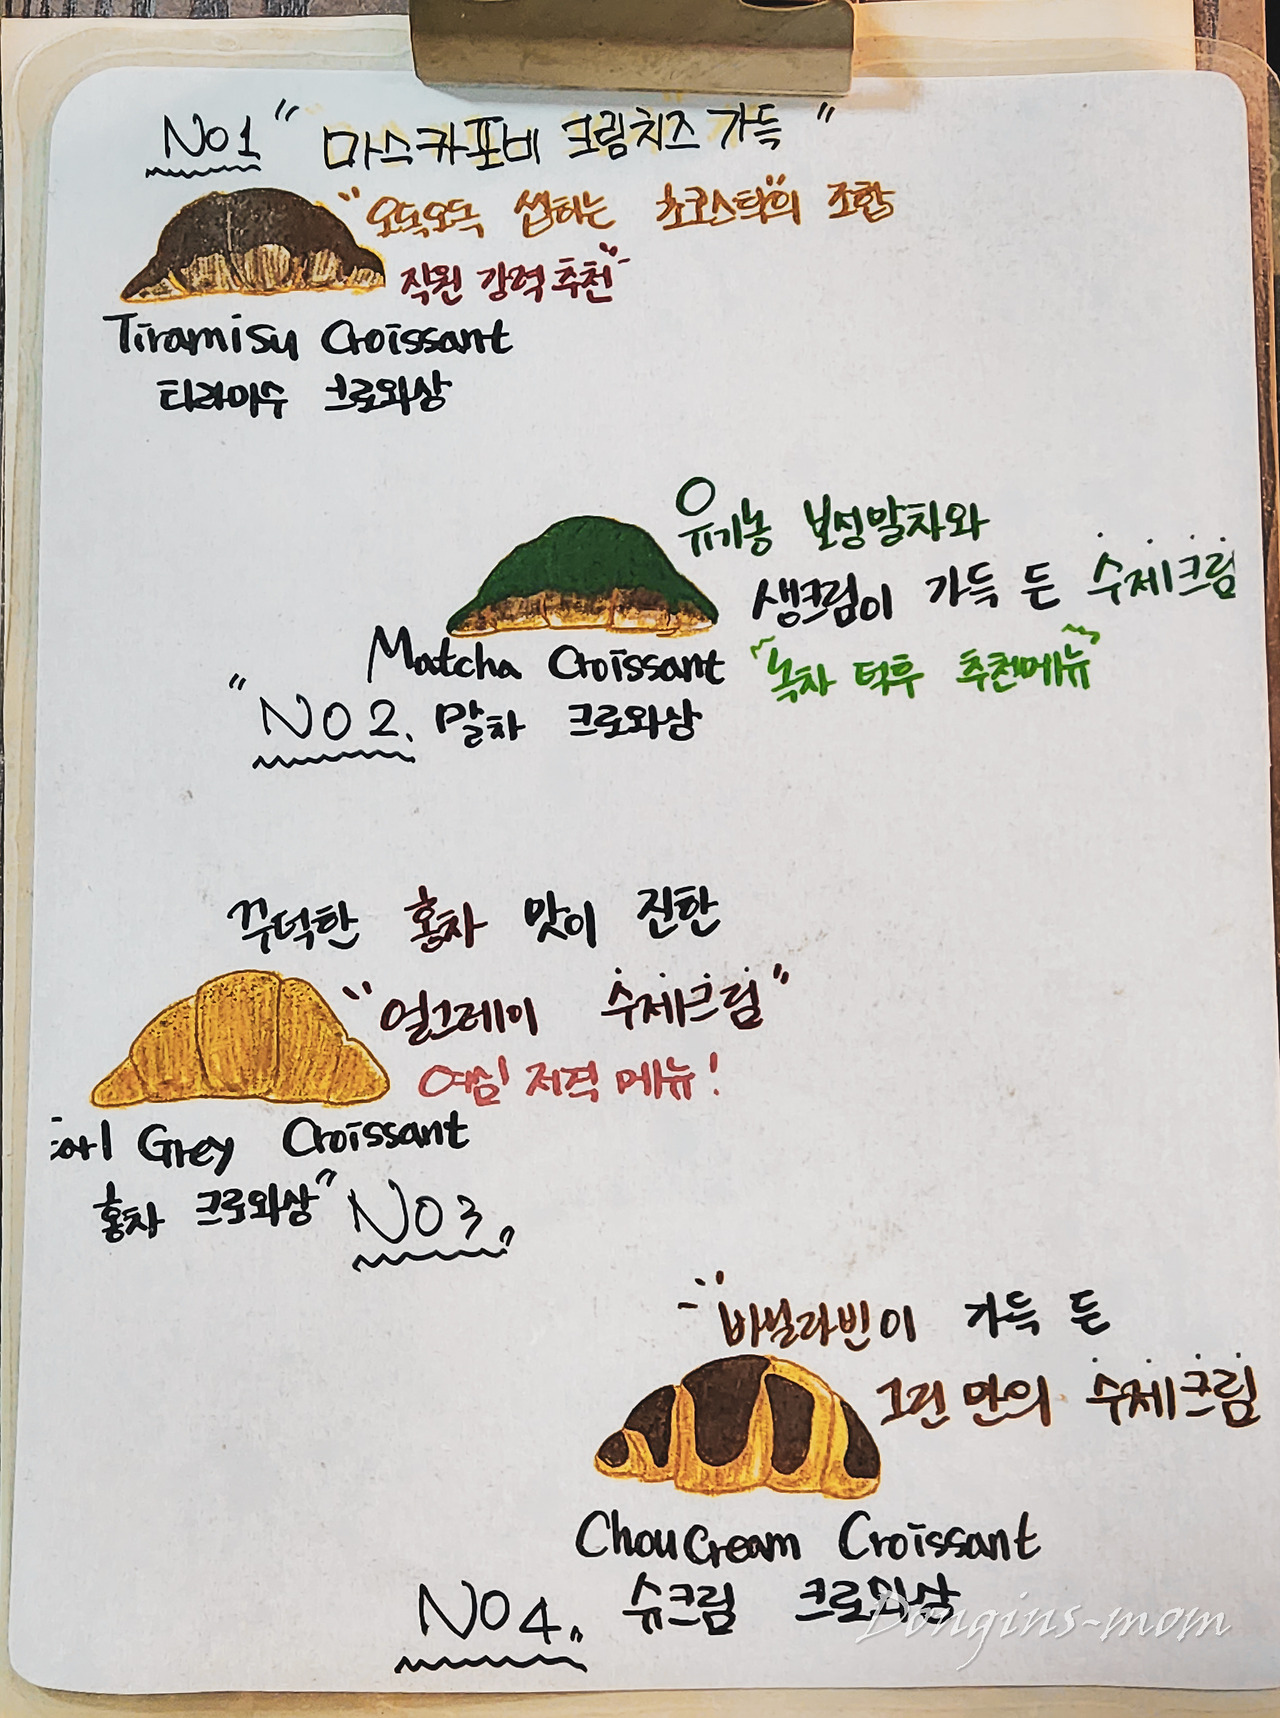 NO1 " 마스카포비 크림치즈 가득 "
"오독오독 씹히는 초코스틱"의 조합
직원 강력추천"
Tiramisu Croissant
티라미수 크로와상
유기농 보성말차와
생크림이 가득 든 수제크림
Matcha Croissant
"녹차 덕후 추천메뉴"
"NO2. 말차 크로와상
꾸덕한 홍차 맛이 진한
"얼그레이 수제크림"
여심 저격 메뉴!
Earl Grey Croissant
홍차 크로와상" NO3."
"바닐라빈이 가득 든
그린 만의 수제크림
ChouCream Croissant
NO4." 슈크림 크로와상
Dongins-mom